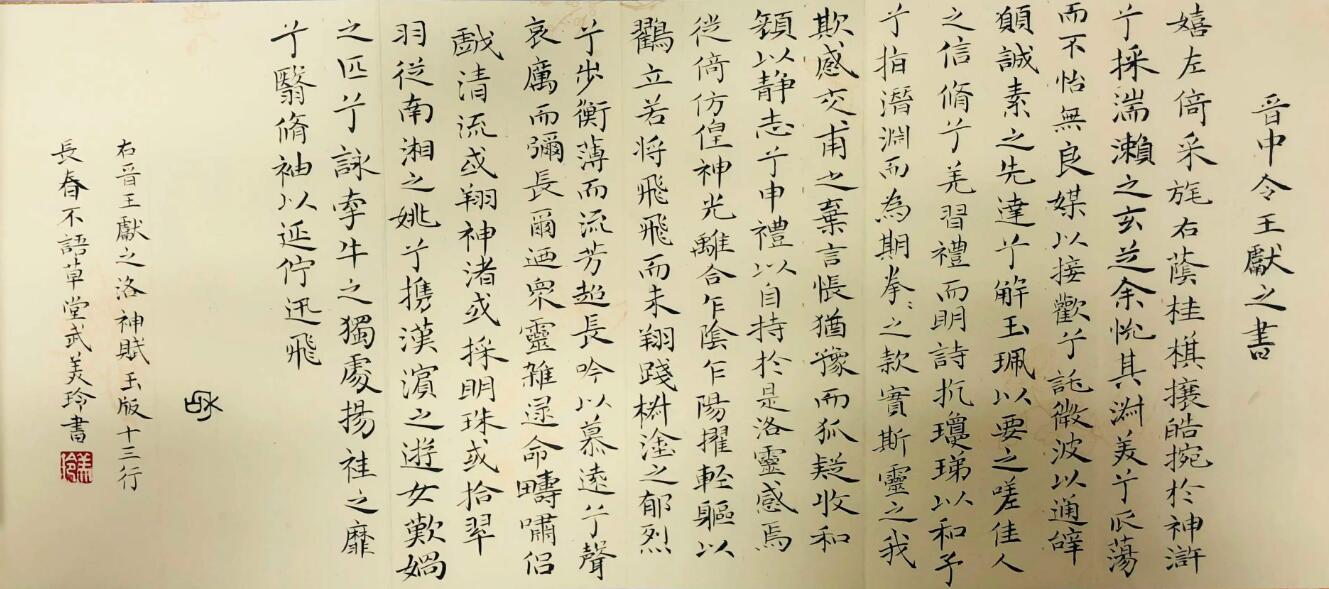 晋中令王獻之書
嬉左倚采旄右蔭桂棋攘皓捥於神滸
兮採湍瀨之玄芝余恱其淑美兮蕩
而不怡無良媒以接歡兮託微波以通辝
願誠素之先達兮解玉珮以要之嗟佳人
之信脩兮羌習禮而明詩抗瓊珶以和予
兮指潛淵而為期拳〻之款實斯靈之我
欺感交甫之棄言悵猶豫而狐疑收和
顏以静志兮申禮以自持於是洛靈感焉
徙倚仿偟神光離合乍陰乍陽擢輕軀以
鸛立若将飛飛而未翔踐椒塗之郁烈
兮步衡薄而流芳超長吟以慕遠兮聲
哀厲而彌長爾迺眾靈雜遝命疇嘯侶
戲清流或翔神渚或採明珠或拾翠
羽從南湘之姚兮攜漢濱之遊女歎媧
之匹兮詠牽牛之獨處揚袿之靡
兮翳脩袖以延佇迅飛
右晉王獻之洛神賦玉版十三行
長春不語草堂武美玲書